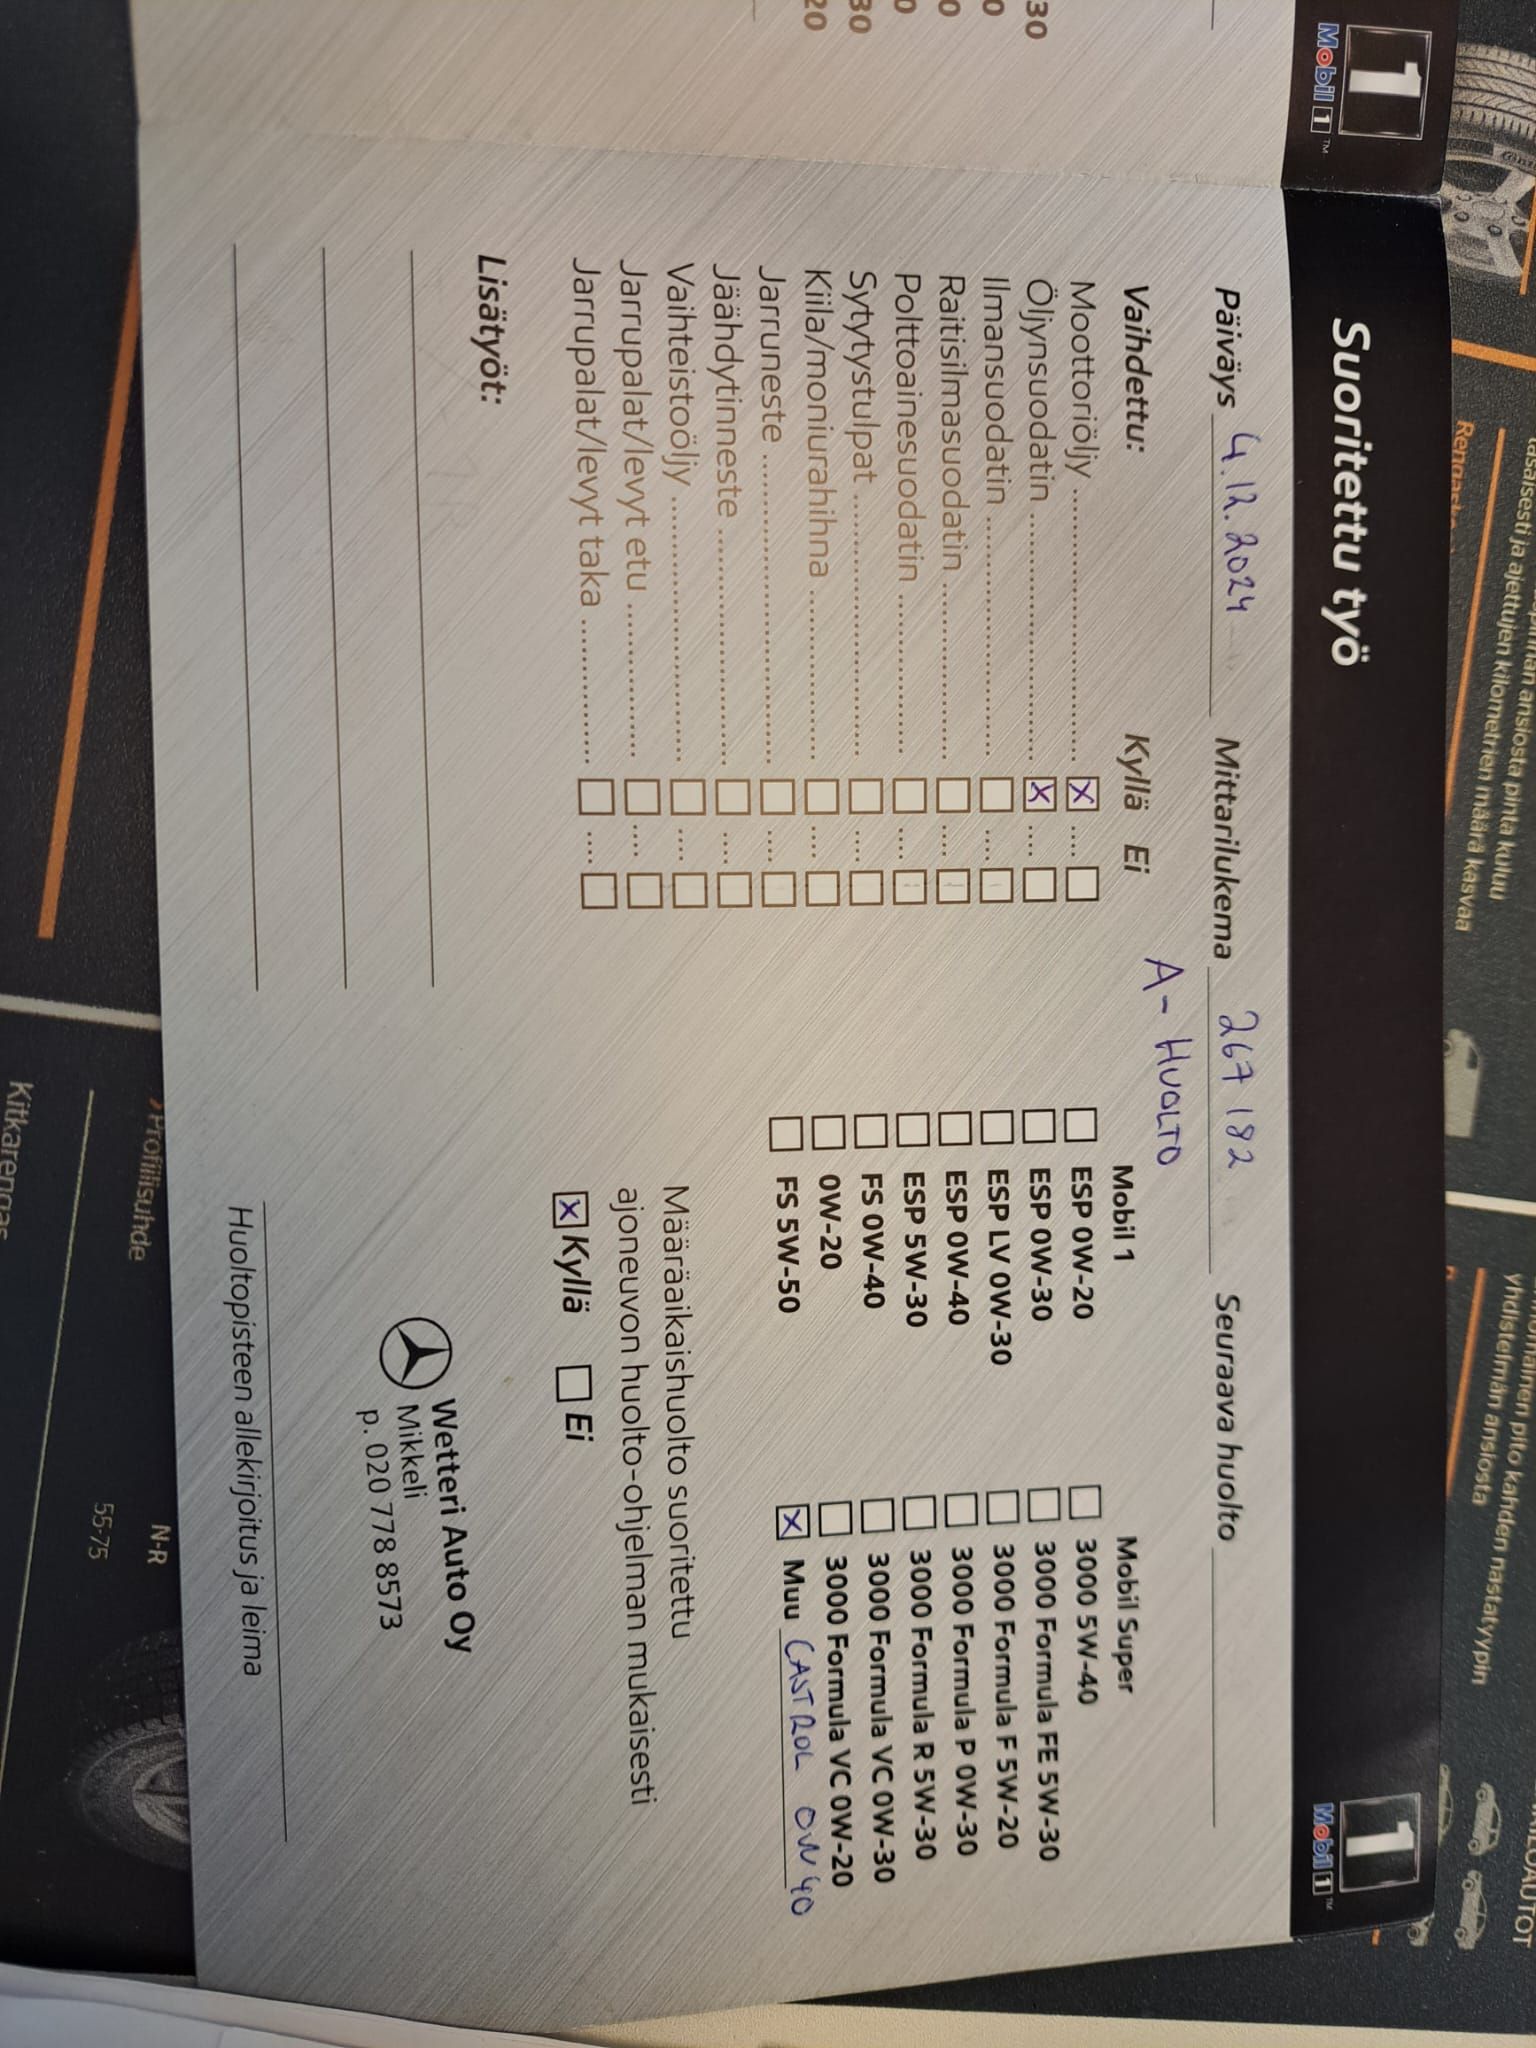 30
0
0
0
30
20
1
Mobil 1™
Suoritettu työ
1
Mobil 1™
Päiväys 4.12.2024 Mittarilukema 267 182 Seuraava huolto
A-HUOLTO
Vaihdettu: Kyllä Ei
Moottoriöljy
Öljynsuodatin
Ilmansuodatin
Raitisilmasuodatin
Polttoainesuodatin
Sytytystulpat
Kiila/moniurahihna
Jarruneste
Jäähdytinneste
Vaihteistoöljy
Jarrupalat/levyt etu
Jarrupalat/levyt taka
Lisätyöt:
Mobil 1
ESP 0W-20
ESP 0W-30
ESP LV 0W-30
ESP 0W-40
ESP 5W-30
FS 0W-40
0W-20
FS 5W-50
Mobil Super
3000 5W-40
3000 Formula FE 5W-30
3000 Formula F 5W-20
3000 Formula P 0W-30
3000 Formula R 5W-30
3000 Formula VC 0W-30
3000 Formula VC 0W-20
Muu CASTROL 0W40
Määräaikaishuolto suoritettu
ajoneuvon huolto-ohjelman mukaisesti
Kyllä Ei
Wetteri Auto Oy
Mikkeli
p. 020 778 8573
Huoltopisteen allekirjoitus ja leima
ansiosta pinta kuluu
ja ajettujen kilometrien määrä kasvaa
pito kahden nastatyypin
yhdistelmän ansiosta
Profiilisuhde
N-R
55-75
Kitkarengas